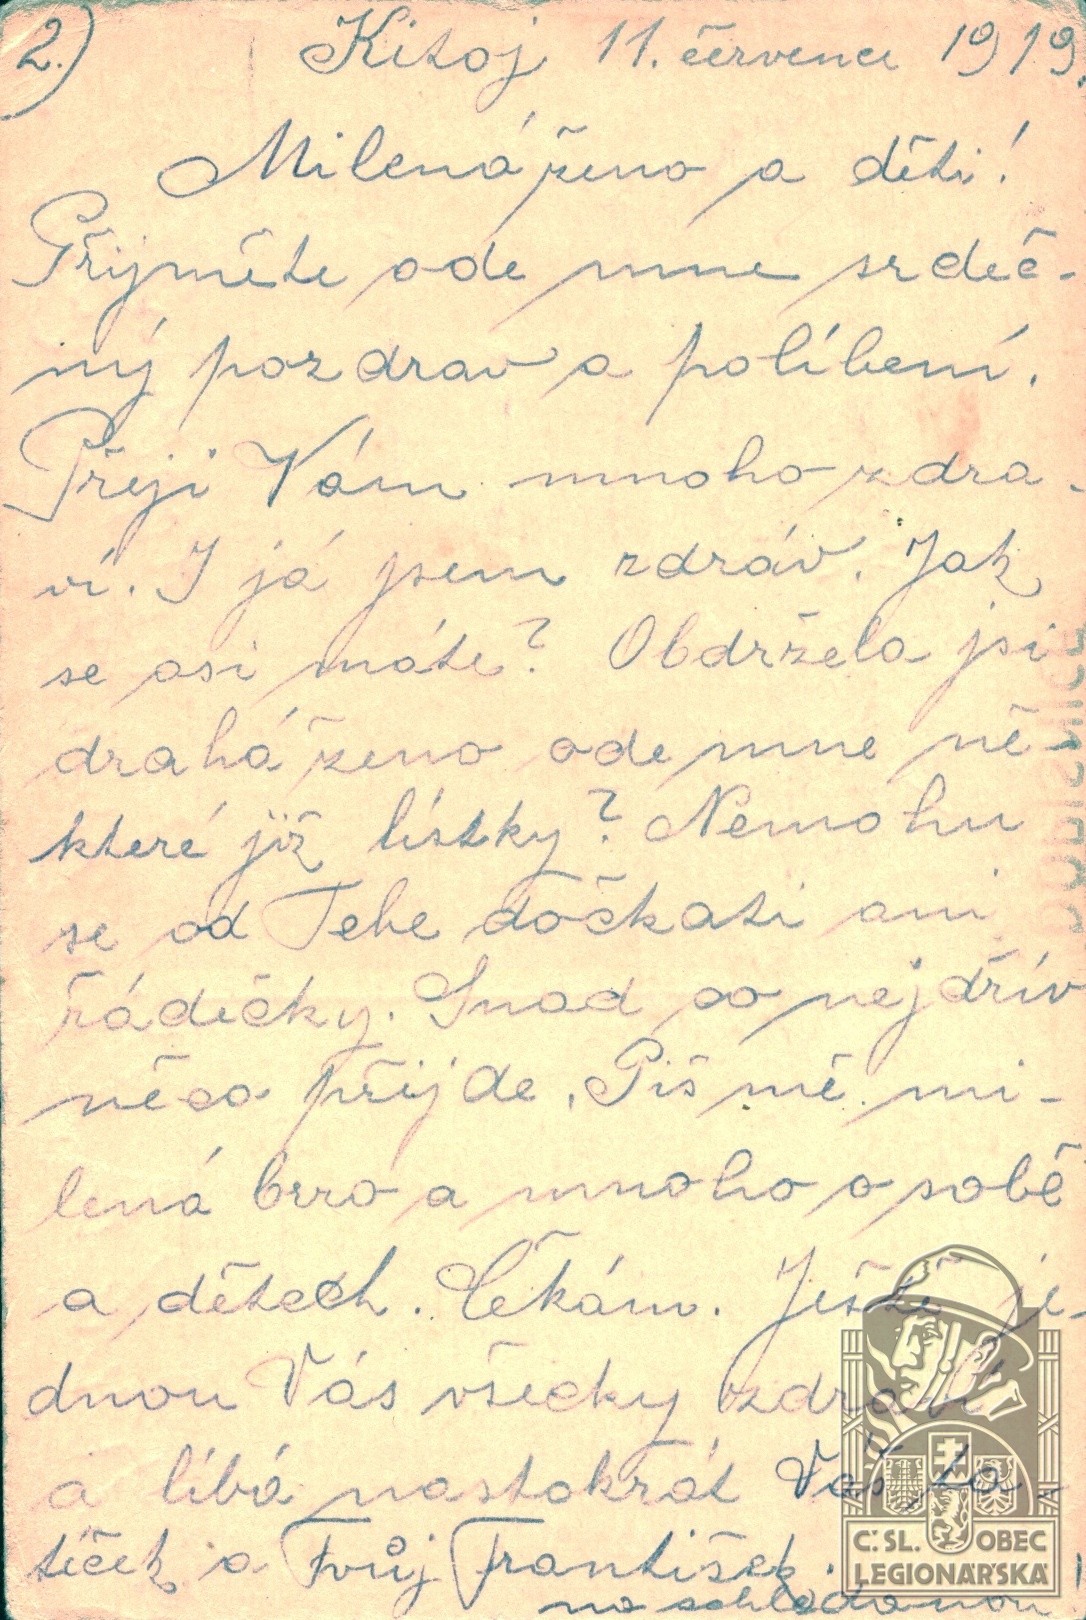 2.) Kitoj 11. července 1919.
Milená ženo a děti!
Přijměte ode mne srdeč-
ný pozdrav a políbení.
Přeji Vám mnoho zdra-
ví. I já jsem zdráv. Jak
se asi máte? Obdržela jsi
drahá ženo ode mne ně-
které již lístky? Nemohu
se od Tebe dočkati ani
řádečky. Snad co nejdřív
něco přijde. Piš mě mi-
lená brzo a mnoho o sobě
a dětech. Čekám. Ještě je-
dnou Vás všecky zdraví
a líbá nastokrát Váš ta-
tíček a Tvůj František.
na schledanou!
Č.SL. OBEC
LEGIONÁŘSKÁ